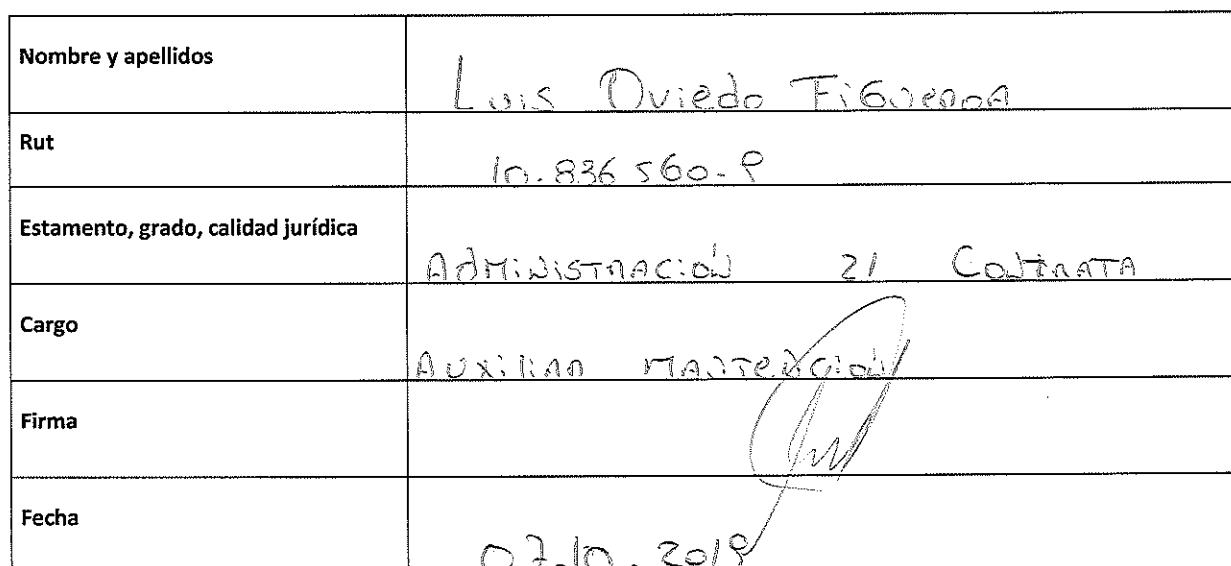 Nombre y apellidos Luis Oviedo Figueroa
Rut 10.836 560-9
Estamento, grado, calidad jurídica Administración 21 Contrata
Cargo Auxiliar Mantención
Firma
Fecha 07.10.2019